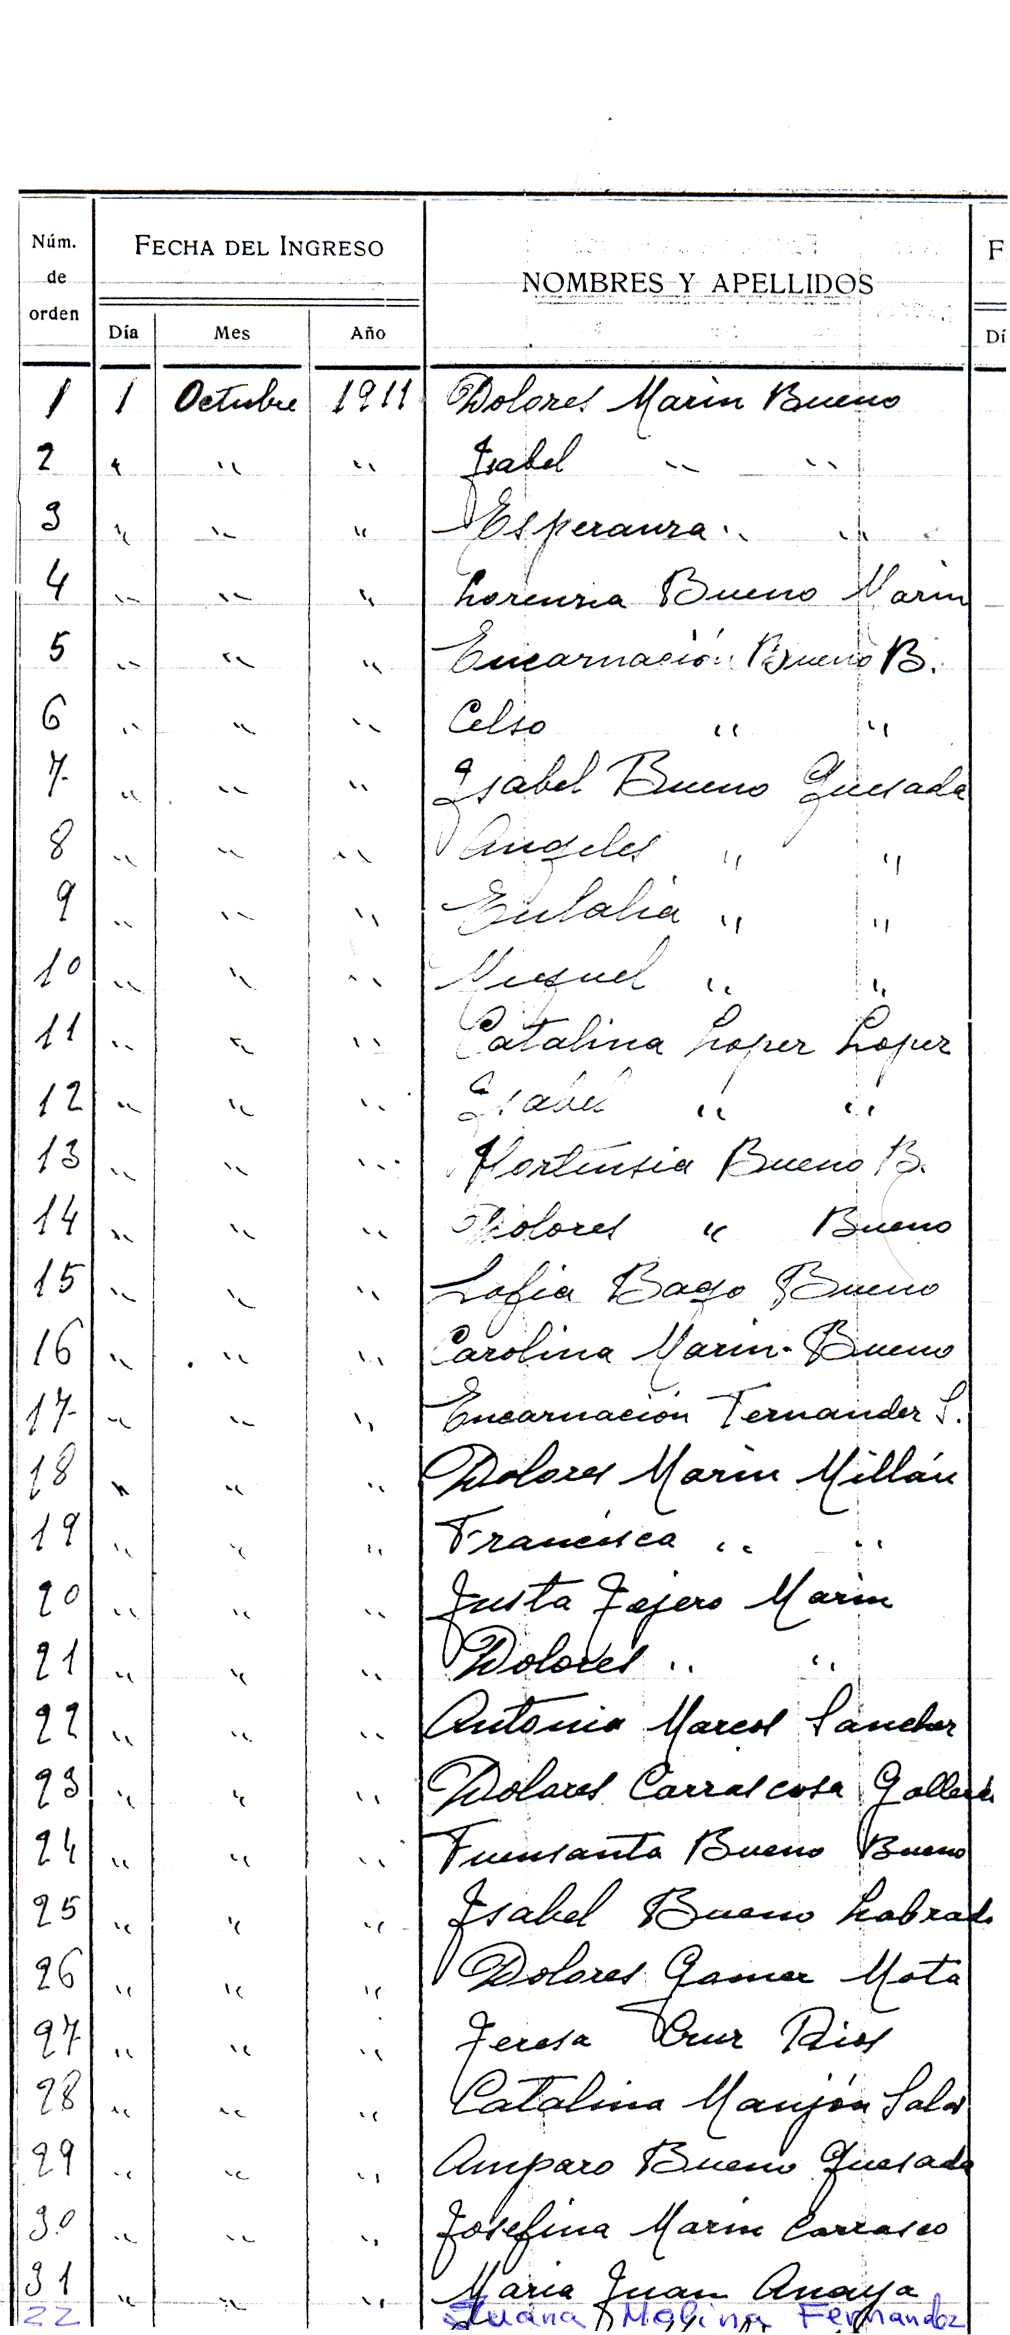 Núm. de orden FECHA DEL INGRESO NOMBRES Y APELLIDOS F
Día Mes Año Dí
1 1 Octubre 1911 Dolores Marin Bueno
2 " " " Isabel " "
3 " " " Esperanza " "
4 " " " Lorenza Bueno Marin
5 " " " Encarnación Bueno B.
6 " " " Celso " "
7 " " " Isabel Bueno Quesada
8 " " " Angeles " "
9 " " " Eulalia " "
10 " " " Miguel " "
11 " " " Catalina Lopez Lopez
12 " " " Isabel " "
13 " " " Hortensia Bueno B.
14 " " " Dolores " Bueno
15 " " " Sofia Bago Bueno
16 " " " Carolina Marin-Bueno
17 " " " Encarnación Fernandez S.
18 " " " Dolores Marin Millán
19 " " " Francisca " "
20 " " " Justa Tejero Marin
21 " " " Dolores " "
22 " " " Antonia Marcos Sanchez
23 " " " Dolores Carrascosa
24 " " " Fuensanta Bueno Bueno
25 " " " Isabel Bueno Labrad
26 " " " Dolores Gomez Mota
27 " " " Teresa Cruz Rios
28 " " " Catalina Manjón Salas
29 " " " Amparo Bueno Quesada
30 " " " Josefina Marin Carrasco
31 " " " Maria Juan Anaya
Juana Molina Fernandez